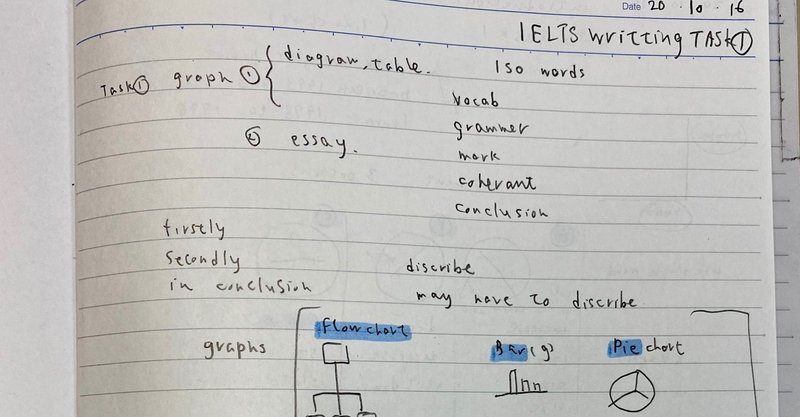 Date 20 · 10 · 16
IELTS writting TASK①
Task① graph ① diagram, table. 150 words
vocab
② essay.
grammer
mark
coherant
conclusion
firstly
Secondly
in conclusion
discribe
may have to discribe
graphs
Flow chart
Bar (g)
Pie chart